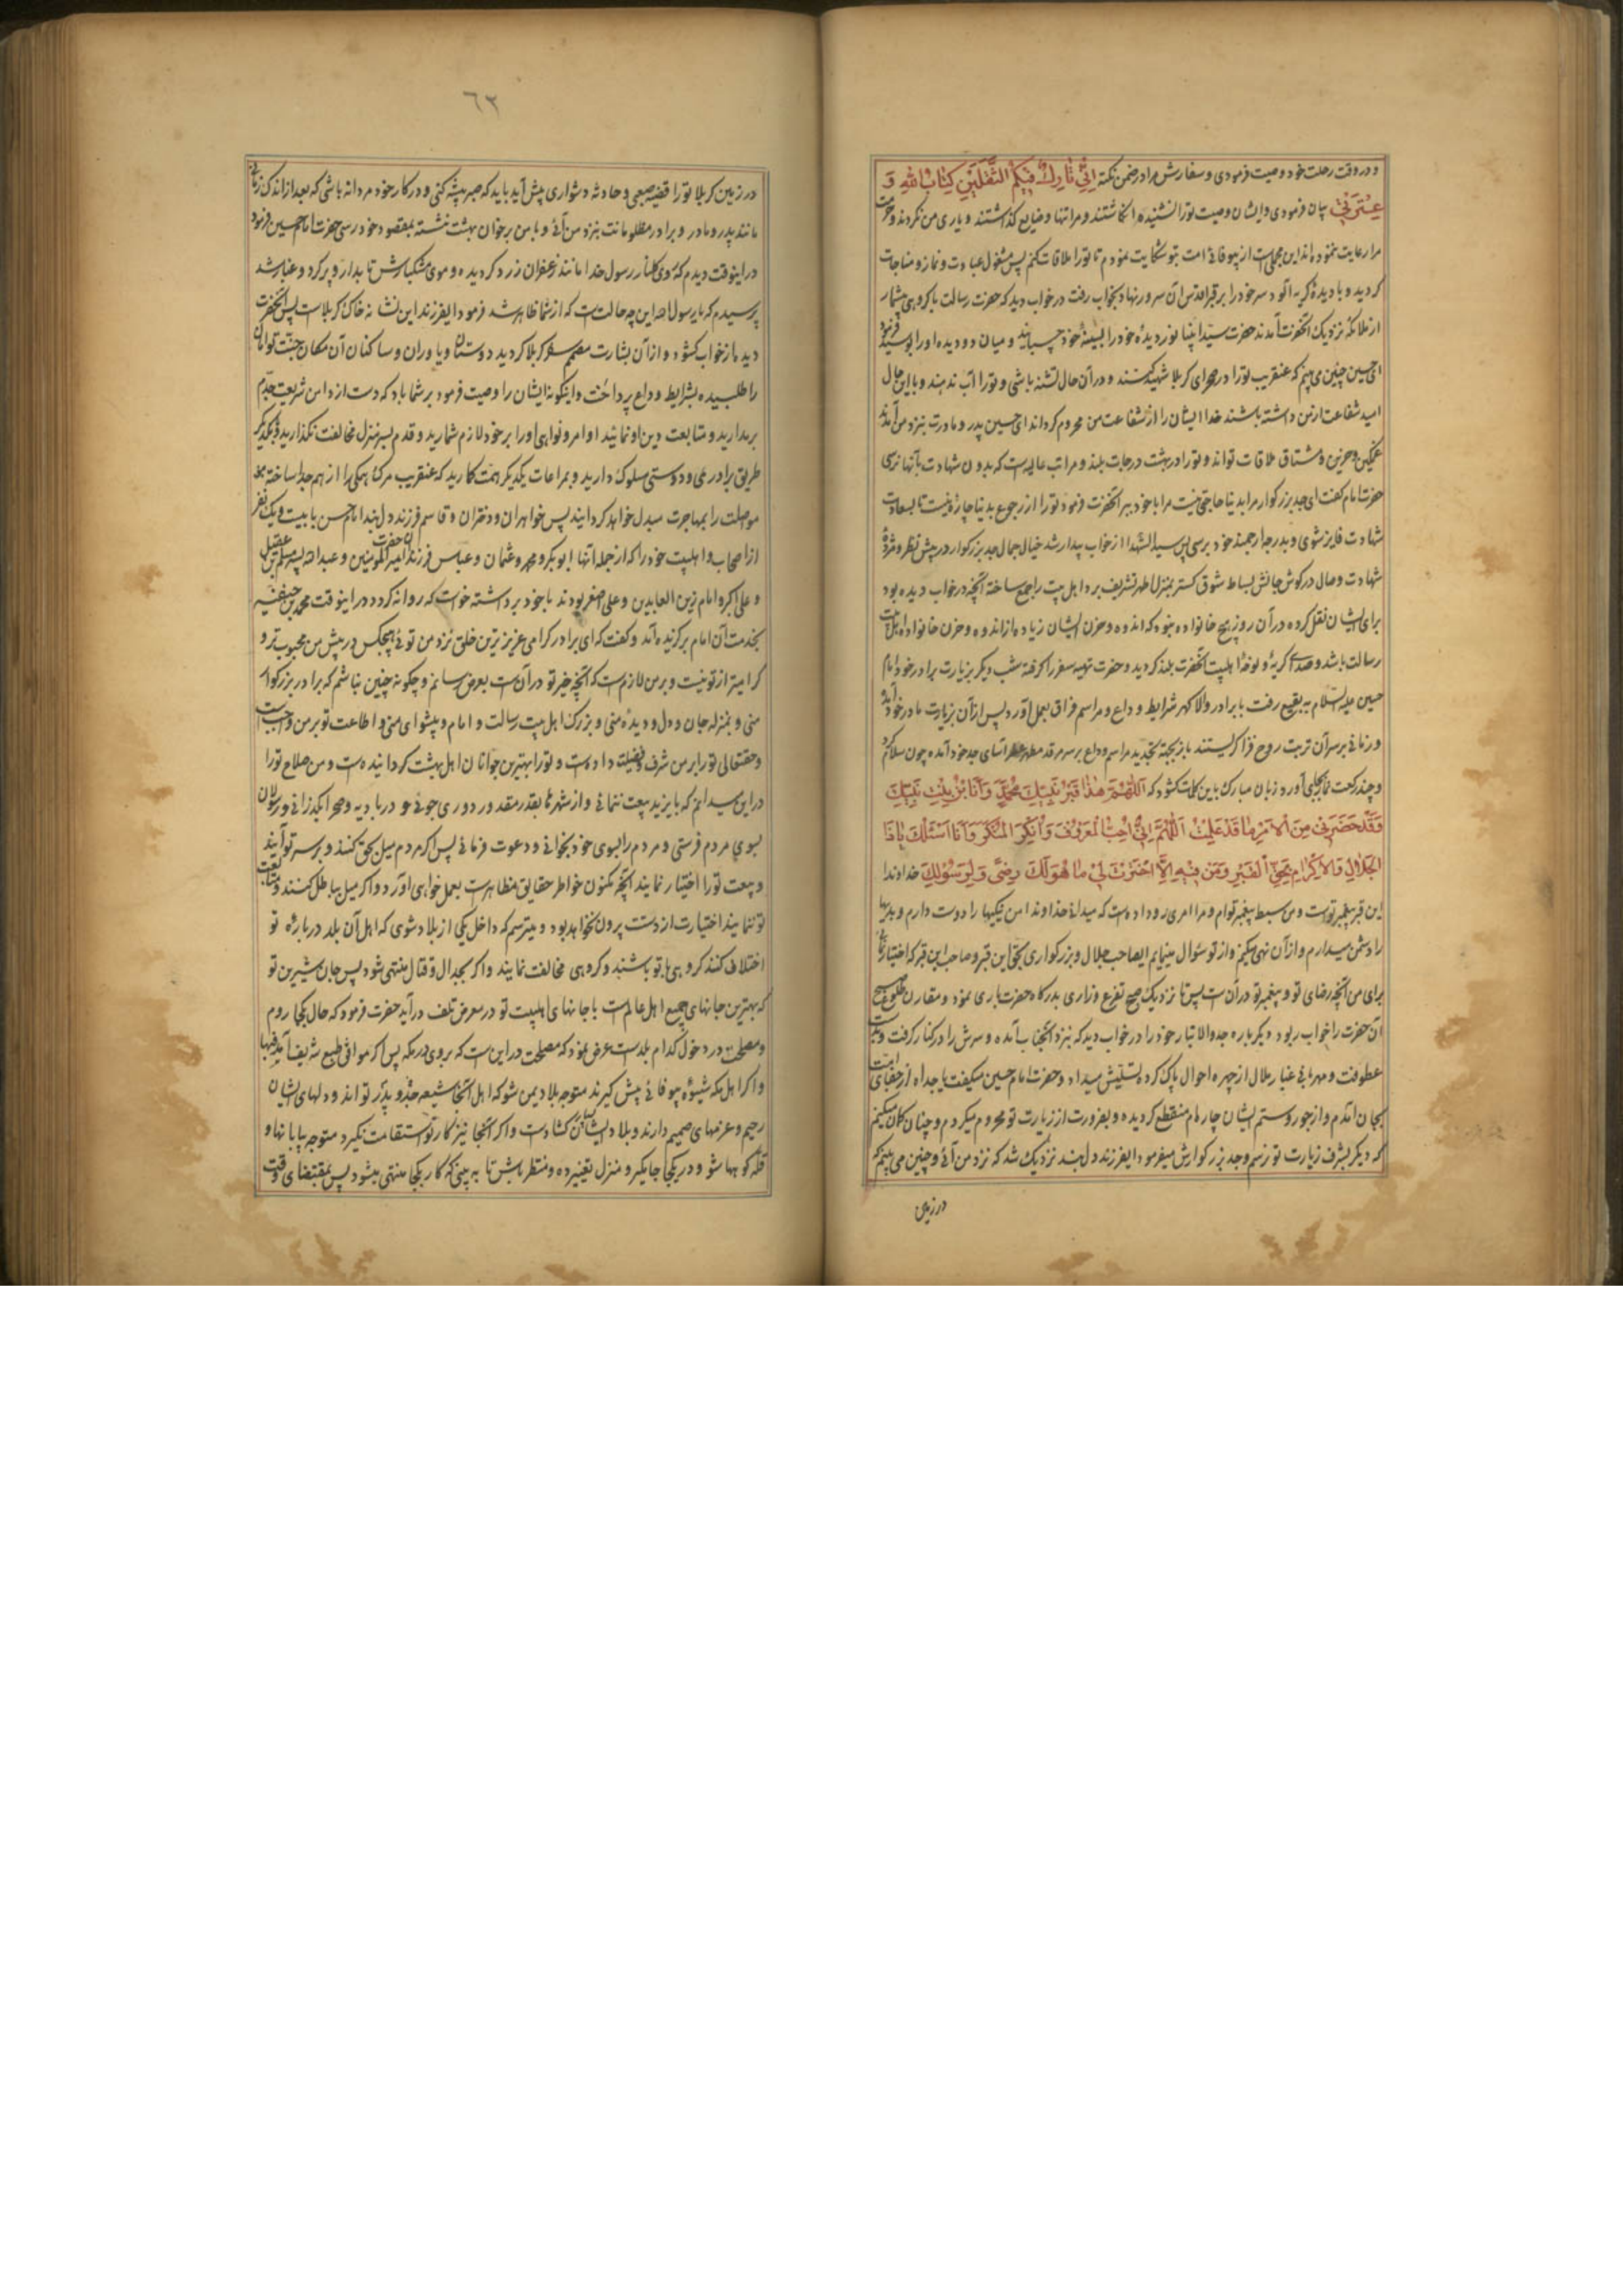 و در وقت رحلت خود وصیت فرمودی و سفارش مرا در ضمن نکته اِنّی تارِکٌ فیکُمُ الثَّقَلَینِ کِتابَ اللهِ وَ
عِترَتی بیان فرمودی و ایشان وصیت تو را نشنیده انکاشتند و مرا تنها و ضایع کذاشتند و یاری من نکردند و حرمت
مرا رعایت ننموده اند این مجملی است از بیوفائی امت بتو شکایت نمودم تا تو را ملاقات کنم پس مشغول عبادت و نماز و مناجات
کردید و با دیدهٔ کریه آلود سر خود را بر قبر اقدس آن سرور نهاد بخواب رفت در خواب دید که حضرت رسالت با کروهی بیشمار
از ملائکه نزدیک آنحضرت آمدند حضرت سید انبیا نور دیدهٔ خود را بسینهٔ خود چسبانید و میان دو دیده او را بوسید فرمود
ای حسین چنین می بینم که عنقریب تو را در صحرای کربلا شهید کنند و در آن حال تشنه باشی و تو را آب ندهند و با این حال
امید شفاعت از من داشته باشند خدا ایشان را از شفاعت من محروم کرداند ای حسین پدر و مادرت بنزد من آمدند
غمکین و حزین و مشتاق ملاقات تواند و تو را در بهشت درجات بلند و مراتب عالیه است که بدون شهادت بآنها نرسی
حضرت امام کفت ای جد بزرکوار مرا بدنیا حاجتی نیست مرا با خود ببر آنحضرت فرمود تو را از رجوع بدنیا چاره نیست تا بسعادت
شهادت فایز شوی و بدرجه ارجمند خود برسی پس سید الشهدا از خواب بیدار شد خیال جمال جد بزرکوار در پیش نظر و مژدهٔ
شهادت وصال در کوش جانش بساط شوق کستر بمنزل اطهر تشریف برد اهل بیت را جمع ساخته آنچه در خواب دیده بود
برای ایشان نقل کرده در آن روز هیچ خانواده نبود که اندوه و حزن ایشان زیاده از اندوه و حزن خانواده اهل بیت
رسالت باشد و صدای کریه و نوحهٔ اهلبیت آنحضرت بلند کردید و حضرت تهیه سفر را کرفته شب دیکر بزیارت برادر خود امام
حسن علیه السلام به بقیع رفت با برادر والا کهر شرایط وداع و مراسم فراق بعمل آورد پس از آن بزیارت مادر خود آمد
و زمانی بر سر آن تربت روح فزا کریستند باز بجهة تجدید مراسم وداع بر سر مرقد مطهر عطر آسای جد خود آمده چون سلام کرد
و چند رکعت نماز بجای آورد زبان مبارک باین کلمات کشود که اَللّهُمَّ هذا قَبرُ نَبِیِّکَ مُحَمَّدٍ وَ اَنَا بنُ بِنتِ نَبِیِّکَ
وَ قَد حَضَرَنی مِنَ الاَمرِ ما قَد عَلِمتَ اَللّهُمَّ اِنّی اُحِبُّ المَعرُوفَ وَ اُنکِرُ المُنکَرَ وَ اَنَا اَسئَلُکَ یا ذَا
الجَلالِ وَ الاِکرامِ بِحَقِّ القَبرِ وَ مَن فیهِ اِلّا اختَرتَ لی ما هُوَ لَکَ رِضیً وَ لِرَسُولِکَ خداوندا
این قبر پیغمبر توست و من سبط پیغمبر توام و مرا امری رو داده است که میدانی خداوندا من نیکیها را دوست دارم و بدیها
را دشمن میدارم و از آن نهی میکنم و از تو سئوال مینمایم ایصاحب جلال و بزرکواری بحق این قبر و صاحب این قبر که اختیار نمائی
برای من آنچه رضای تو و پیغمبر تو در آن است پس تا نزدیک صبح تضرع و زاری بدرکاه حضرت باری نمود و مقارن طلوع صبح
آن حضرت را خواب ربود دیکر باره جد والاتبار خود را در خواب دید که بنزد آنجناب آمده و سرش را در کنار کرفت و بدست
عطوفت و مهربانی غبار ملال از چهره احوال پاک کرده تسلیش میداد و حضرت امام حسین میکفت یا جداه از جفای امت
بجان آمدم و از جور و ستم ایشان چارهام منقطع کردیده و بضرورت از زیارت تو محروم میکردم و چنان کمان میکنم
که دیکر بشرف زیارت تو نرسم و جد بزرکوارش میفرمود ایفرزند دلبند نزدیک شد که نزد من آئی و چنین می بینم که
در زمین
٦٣
در زمین کربلا تو را قضیهٔ صعبی و حادثه دشواری پیش آید باید که صبر پیشه کنی و در کار خود مردانه باشی که بعد از اندک زمانی
مانند پدر و مادر و برادر مظلومانت بنزد من آئی و با من بر خوان بهشت نشسته بمقصود خود رسی حضرت امام حسین فرمود
در اینوقت دیدم که روی کلنار رسول خدا مانند زعفران زرد کردیده و موی مشکبارش تابدار و پر کرد و غبار شد
پرسیدم که یا رسول الله این چه حالت است که از شما ظاهر شد فرمود ایفرزند این نشانه خاک کربلاست پس آنحضرت
دیده از خواب کشود و از آن بشارت مصمم سفر کربلا کردید دوستان و یاوران و ساکنان آن مکان جنت توامان
را طلبیده بشرایط وداع پرداخت و اینکونه ایشان را وصیت فرمود بر شما باد که دست از دامن شریعت جدم
بر ندارید و متابعت دین او نمائید اوامر و نواهی او را بر خود لازم شمارید و قدم بسر منزل مخالفت نکذارید و بیکدیکر
طریق برادری و دوستی سلوک دارید و بمراعات یکدیکر همت کمارید که عنقریب مرک همکی را از هم جدا ساخته
مواصلت را بمهاجرت مبدل خواهد کردانید پس خواهران و دختران و قاسم فرزند دلبند امام حسن با بیست و یک نفر
از اصحاب و اهلبیت خود را که از جمله آنها ابوبکر و عمر و عثمان و عباس فرزندان حضرت امیر المومنین و عبدالله پسر مسلم بن عقیل
و علی اکبر و امام زین العابدین و علی اصغر بودند با خود برداشته خواست که روانه کردد در اینوقت محمد بن حنفیه
بخدمت آن امام برکزیده آمد و کفت که ای برادر کرامی عزیزترین خلق نزد من توئی هیچکس در پیش من محبوب تر و
کرامیتر از تو نیست و بر من لازم است که آنچه خیر تو در آن است بعرض رسانم و چکونه چنین نباشم که برادر بزرکوار
منی و بمنزله جان و دل و دیده منی و بزرک اهل بیت رسالت و امام و پیشوای منی و اطاعت تو بر من واجب است
و حقتعالی تو را بر من شرف و فضیلت داده است و تو را بهترین جوانان اهل بهشت کردانیده است و من صلاح تو را
در این میدانم که با یزید بیعت ننمائی و از شهرها بقدر مقدور دوری جوئی و در بادیه و صحرا بکذرانی و رسولان
بسوی مردم فرستی و مردم را بسوی خود بخوانی و دعوت فرمائی پس اکر مردم میل بحق کنند و بر سر تو آیند
و بیعت تو را اختیار نمایند آنچه مکنون خاطر حقایق مظاهر است بعمل خواهی آورد و اکر میل بباطل کنند و متابعت
تو ننمایند اختیارت از دست بیرون نخواهد بود و میترسم که داخل یکی از بلاد شوی که اهل آن بلد درباره تو
اختلاف کنند کروهی با تو باشند و کروهی مخالفت نمایند و اکر بجدال و قتال منتهی شود پس جان شیرین تو
که بهترین جانهای جمیع اهل عالم است با جانهای اهلبیت تو در معرض تلف در آید حضرت فرمود که حال بکجا روم
و مصلحت در دخول کدام بلد است عرض نمود که مصلحت در این است که بروی در مکه پس اکر موافق طبع شریف آمد فبها
و اکر اهل مکه شیوهٔ بیوفائی پیش کیرند متوجه بلاد یمن شو که اهل آنجا شیعه جد و پدر تواند و دلهای ایشان
رحیم و عزمهای صمیم دارند و بلاد ایشان کشاده است و اکر آنجا نیز کار تو استقامت نکیرد متوجه بیابانها و
قله کوهها شو و در یکجا جا مکیر و منزل تغییر ده و منتظر باش تا به بینی که کار بکجا منتهی میشود پس بمقتضای وقت